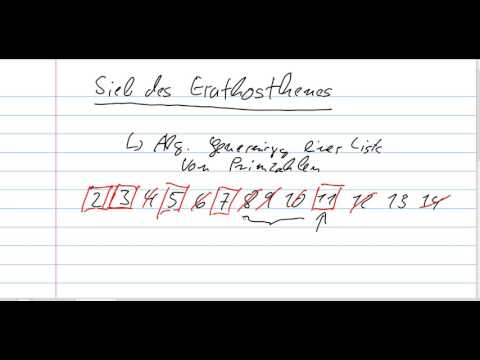 Sieb des Erathosthenes
↳ Alg. Generierung einer Liste
von Primzahlen
2 3 4 5 6 7 8 9 10 11 12 13 14